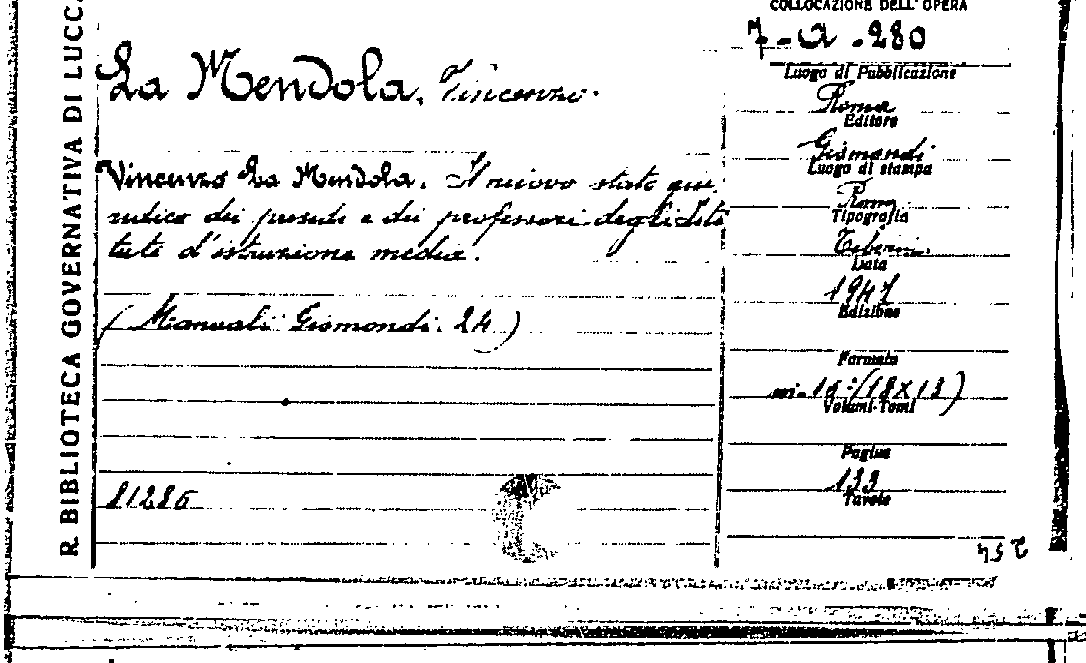 R. BIBLIOTECA GOVERNATIVA DI LUCCA
COLLOCAZIONE DELL'OPERA
7-A-280
La Mendola, Vincenzo.
Luogo di Pubblicazione
Roma
Editore
Gismondi
Luogo di stampa
Roma
Tipografia
Tiberina
Data
1947
Edizione
Vincenzo La Mendola. Il nuovo stato giu
ridico dei presidi e dei professori degli Isti
tuti d'istruzione media.
(Manuali Gismondi. 24)
Formato
in-16°(18x13)
Volumi-Tomi
Pagine
133
Tavole
81286
254